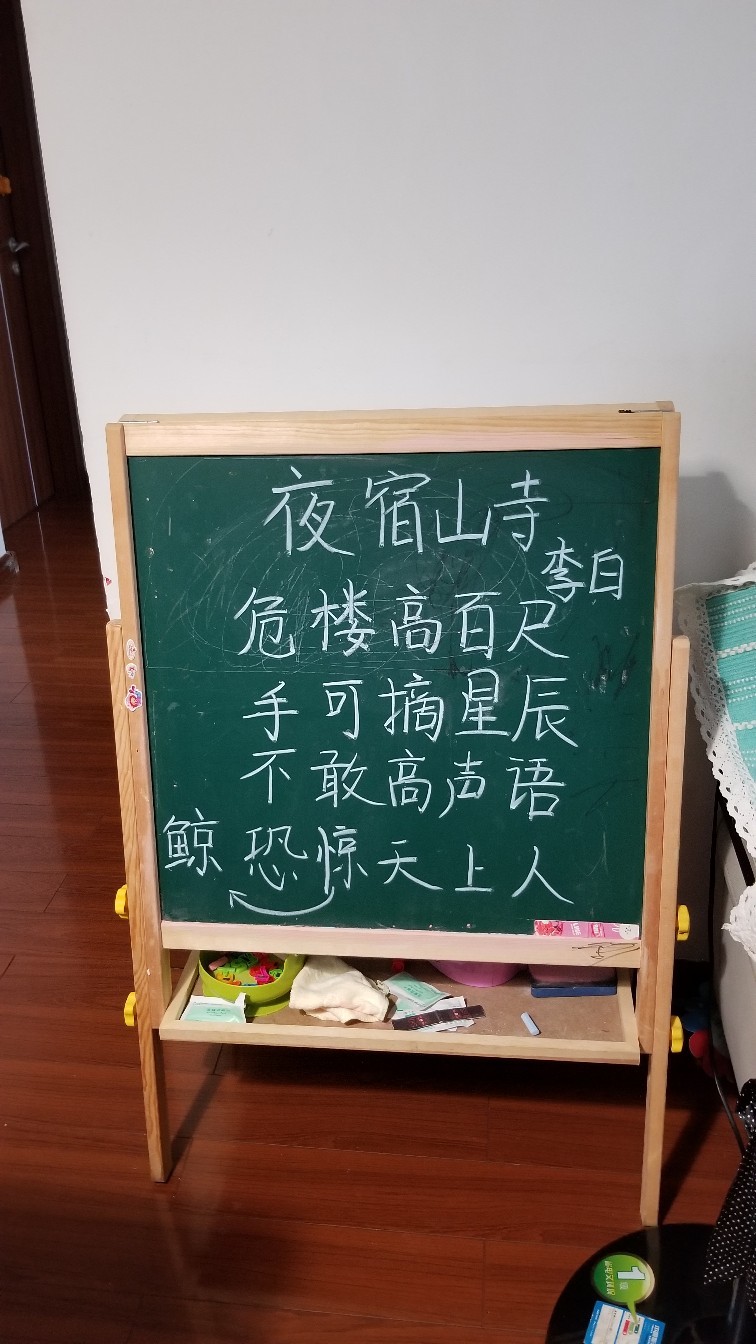 夜宿山寺
李白
危楼高百尺
手可摘星辰
不敢高声语
鲸 恐惊天上人
1